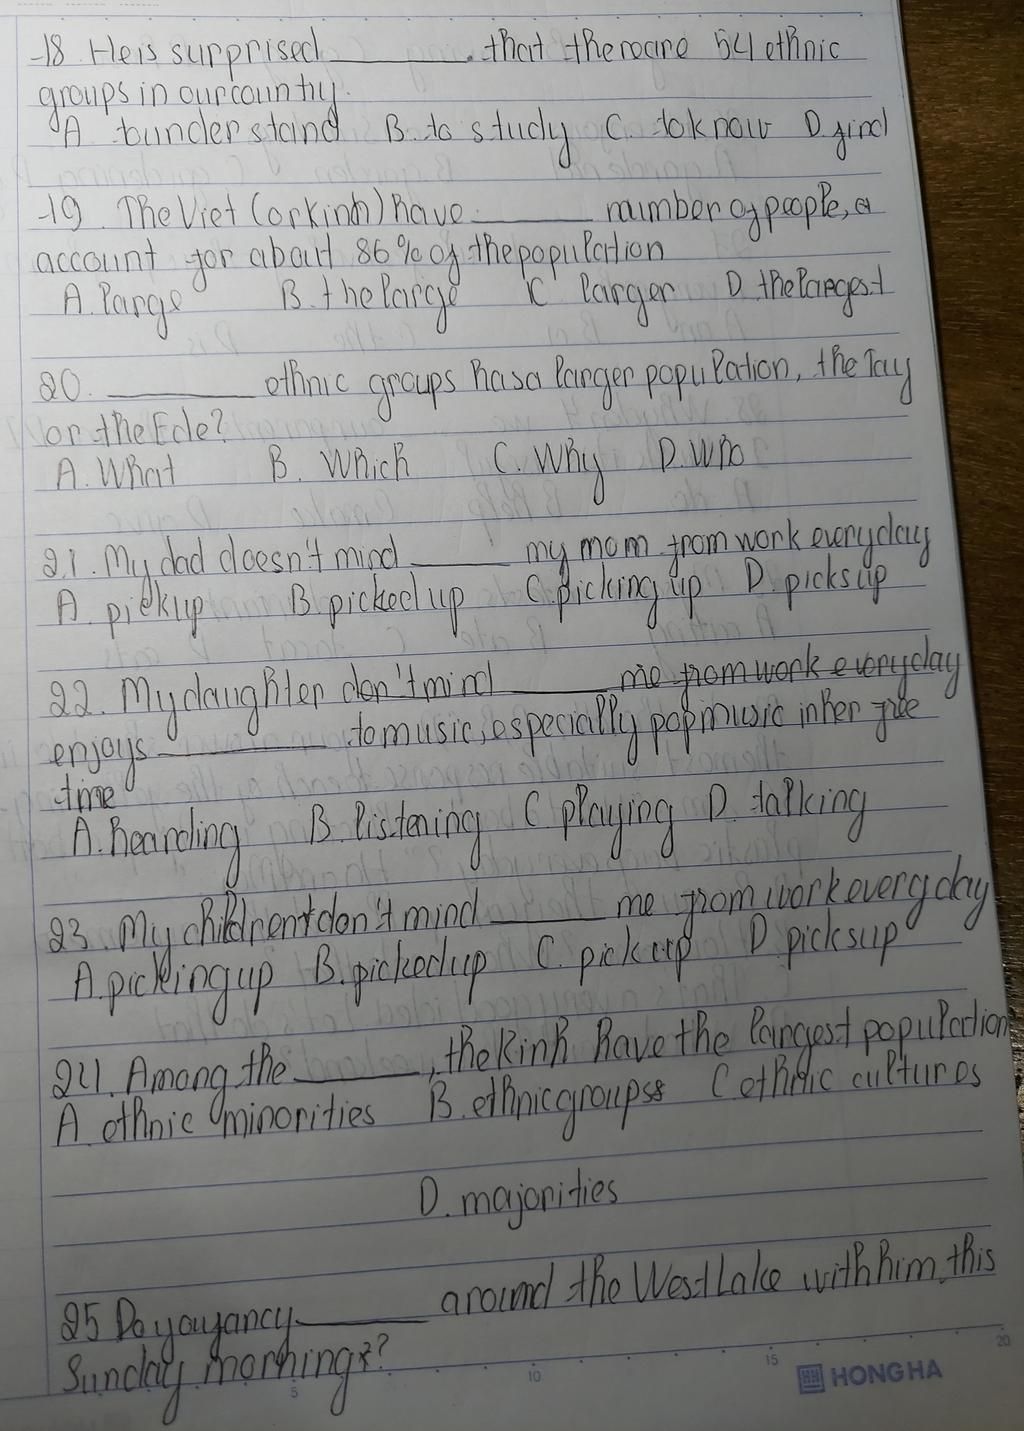 18. He is surprised ________. that there are 54 ethnic
groups in our country.
A tounderstand B. to study C. to know D. find
19. The Viet (or Kinh) have ________ number of people, a
account for about 86% of the population
A. large B. the large C larger D. the largest
20. ________ ethnic groups has a larger population, the Tay
or the Ede?
A. What B. Which C. Why D. Who
21. My dad doesn't mind ________ my mom from work everyday
A. pickup B. picked up C. picking up D. picks up
22. My daughter don't mind ________ me from work everyday
enjoys ________ to music, especially pop music in her free
time
A. hearding B. listening C. playing D. talking
23. My children don't mind ________ me from work every day
A. picking up B. picked up C. pick up D. picks up
24. Among the ________, the Kinh have the largest population
A. ethnic minorities B. ethnic groups C. ethnic cultures
D. majorities
25 Do you fancy ________ around the West Lake with him this
Sunday morning?
5 10 15 20
HONG HA